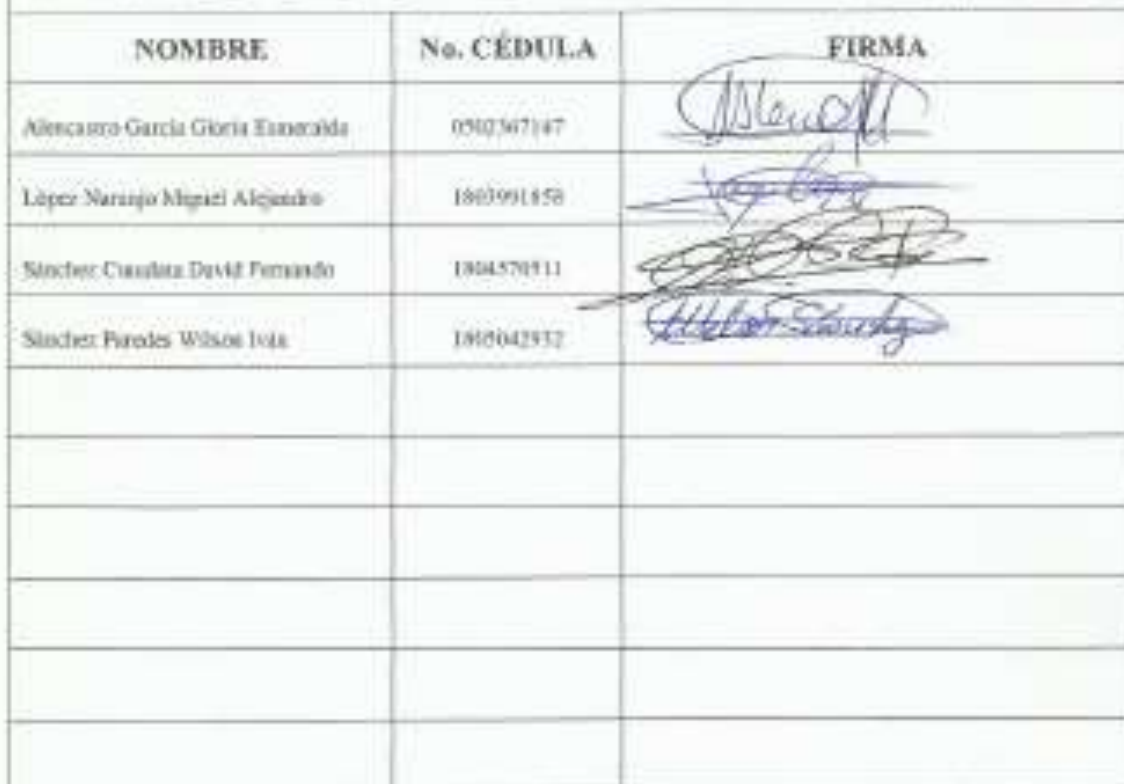 NOMBRE No. CÉDULA FIRMA
Alencastro García Gloria Esmeralda 0502367147
López Naranjo Miguel Alejandro 1803991858
Sánchez David Fernando 1804570511
Sánchez Paredes Wilson Iván 1805042932